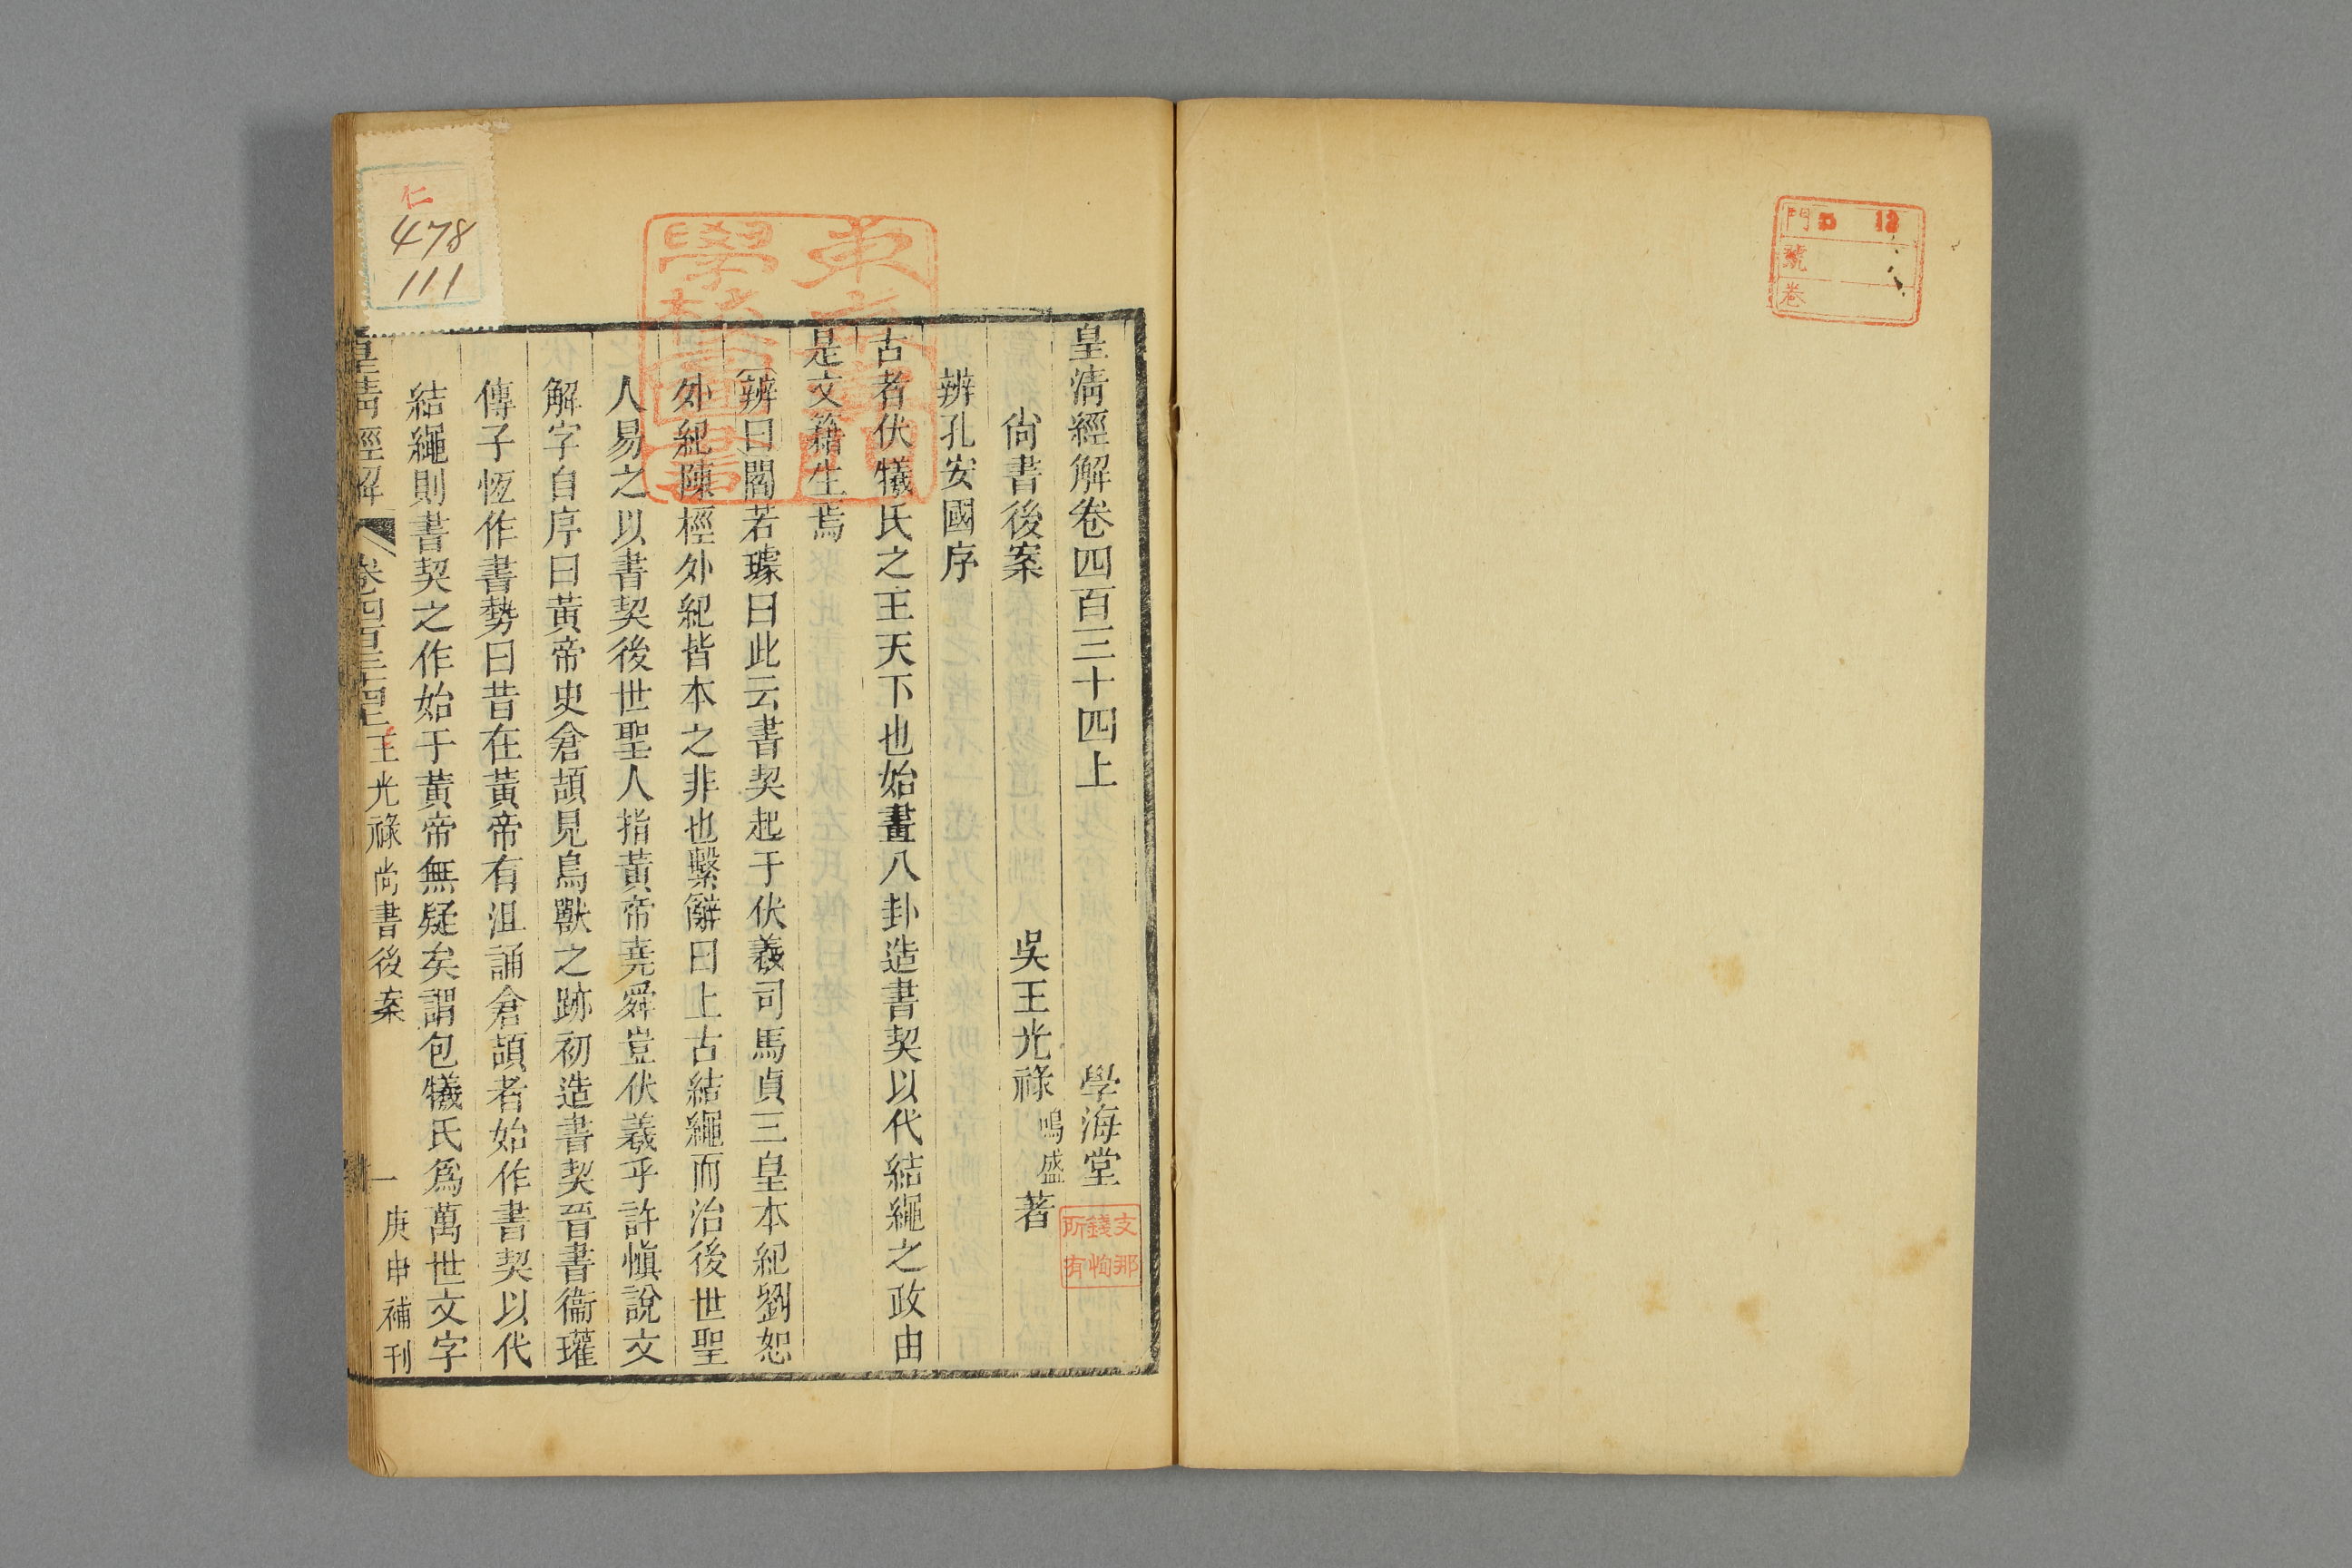 門 口 13
號
卷
皇清經解卷四百三十四上 學海堂
尚書後案 吳王光祿鳴盛著
支那
錢恂
所有
辨孔安國序
古者伏犧氏之王天下也始畫八卦造書契以代結繩之政由
是文籍生焉
辨曰閻若璩曰此云書契起于伏羲司馬貞三皇本紀劉恕
外紀陳桱外紀皆本之非也繫辭曰上古結繩而治後世聖
人易之以書契後世聖人指黃帝堯舜豈伏羲乎許慎說文
解字自序曰黃帝史倉頡見鳥獸之跡初造書契晉書衞瓘
傳子恆作書勢曰昔在黃帝有沮誦倉頡者始作書契以代
結繩則書契之作始于黃帝無疑矣謂包犧氏爲萬世文字
皇清經解 卷四百三十四上 王光祿尚書後案 一 庚申補刊
仁
478
111